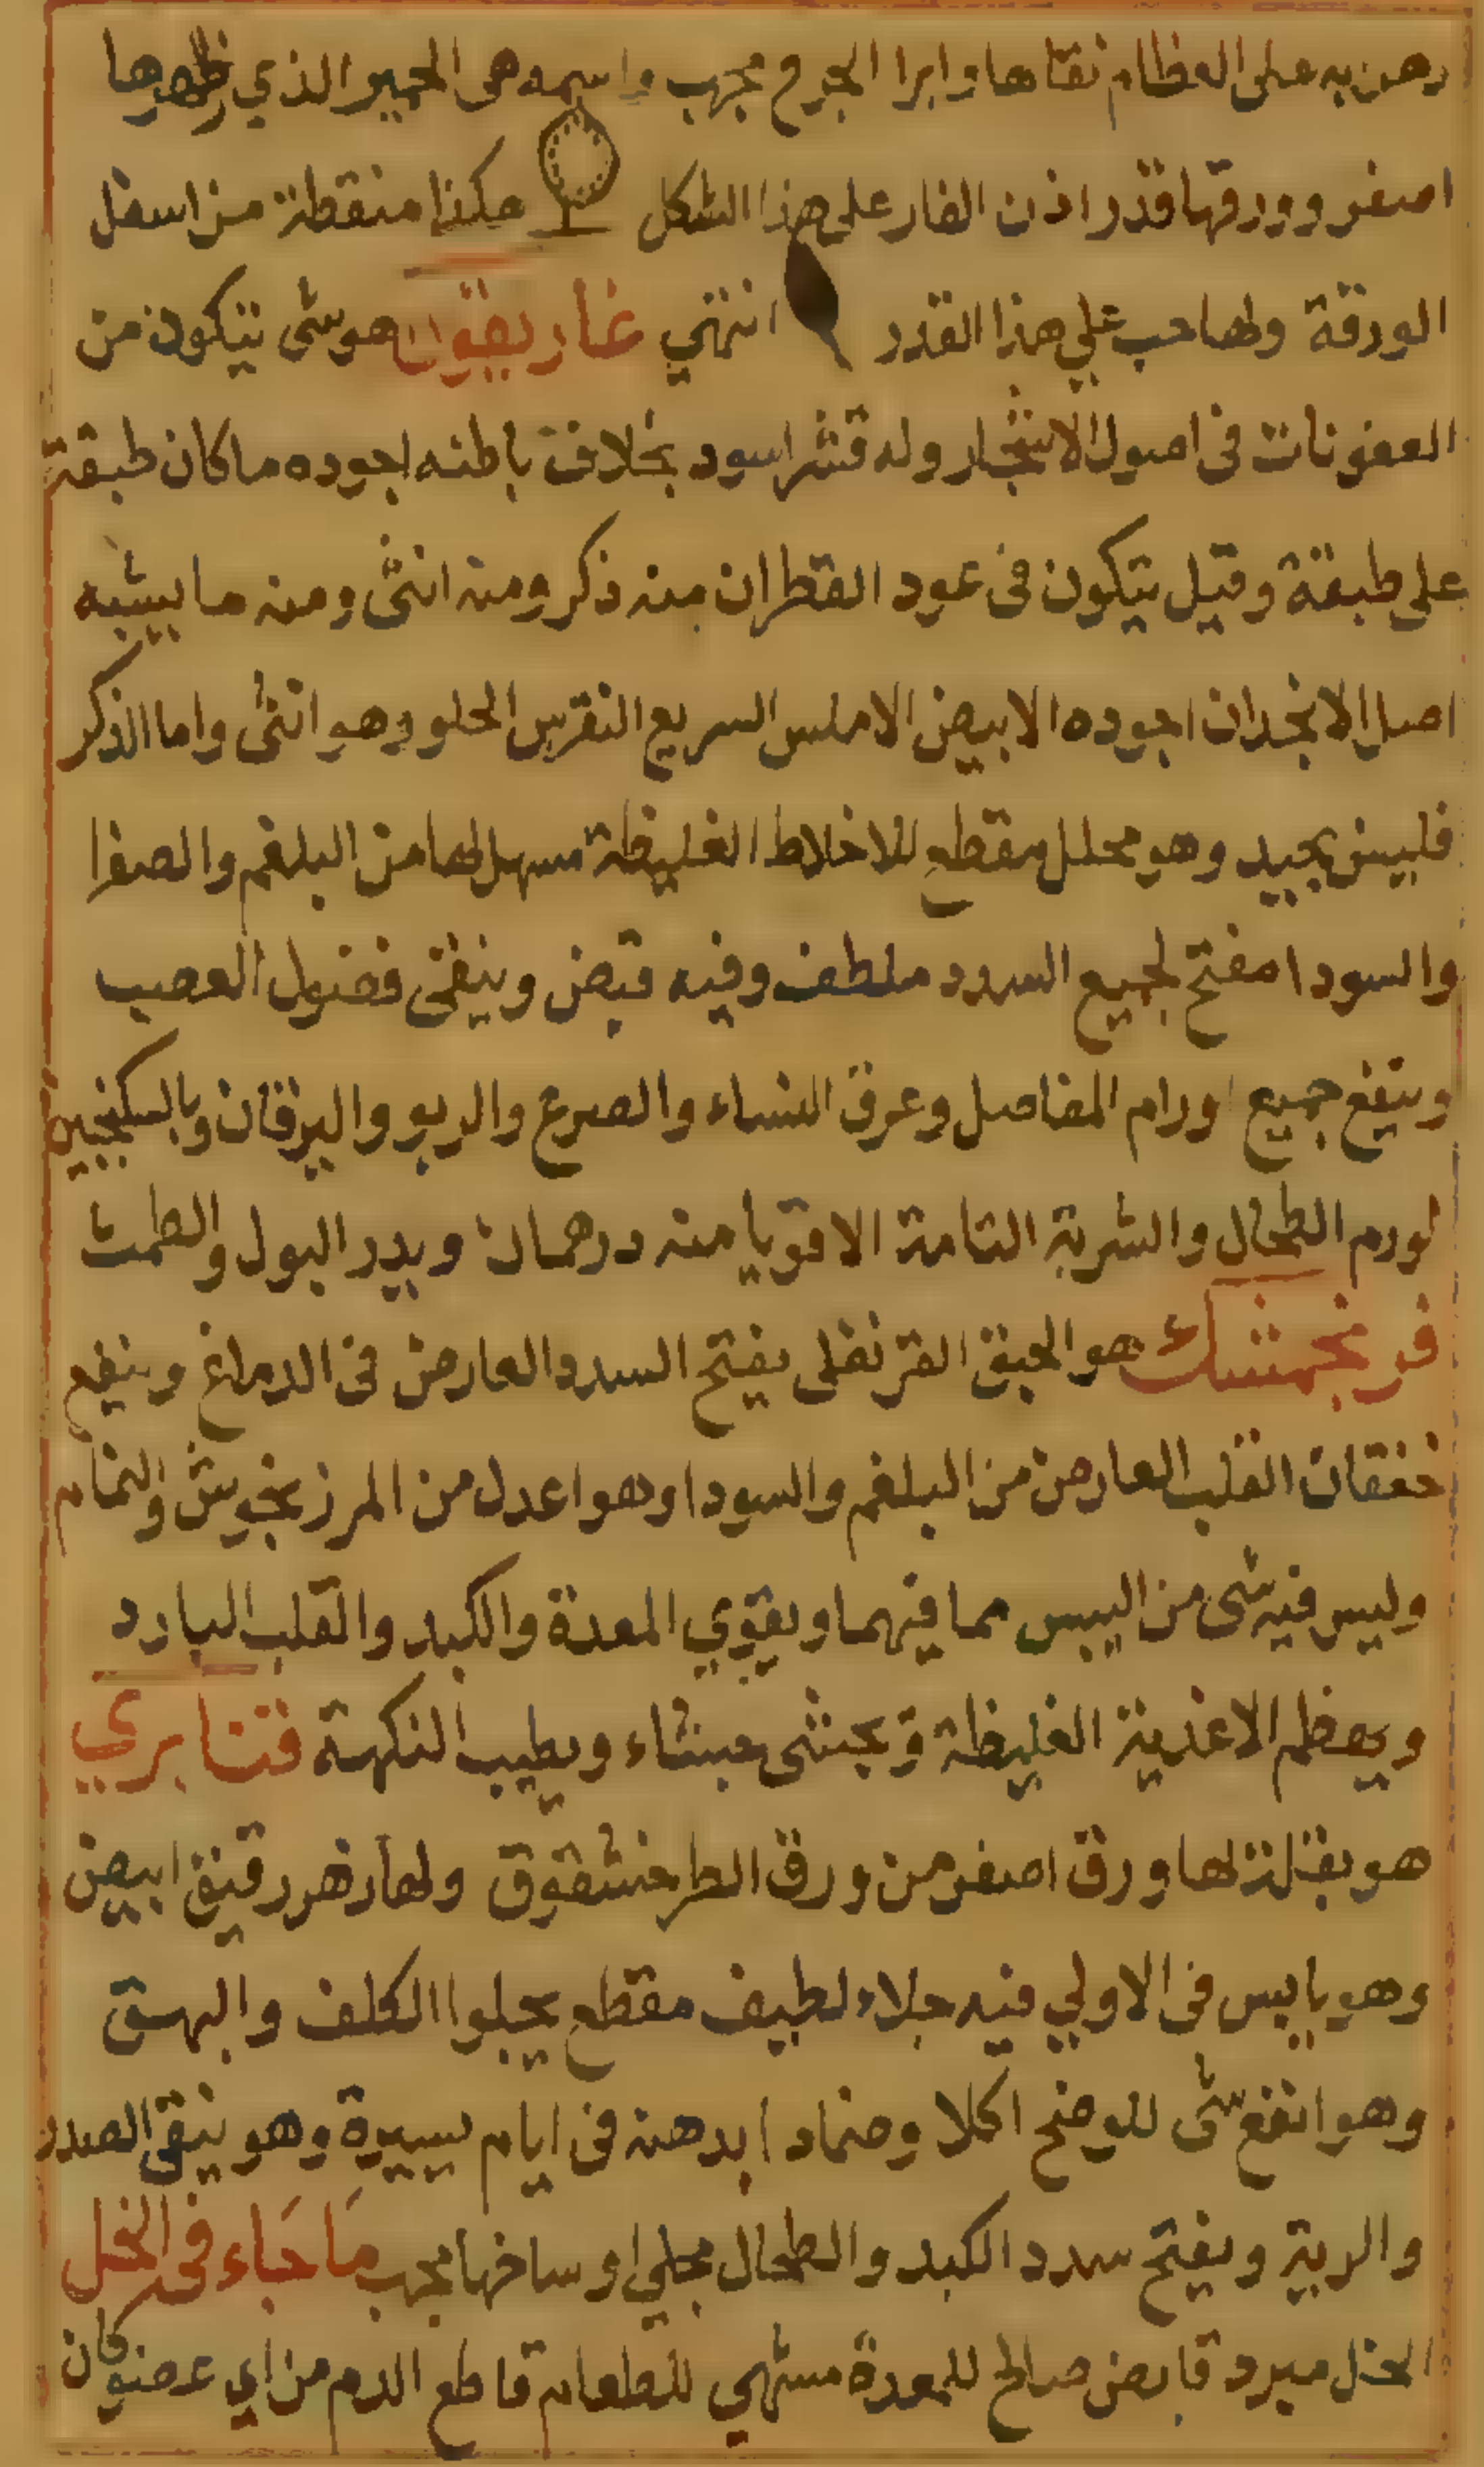 دهن به على العظام نقاها وابرا الجرح مجرب واسمه هى الحمير الذي ظهرها
اصفر وورقها قدر اذن الفار على هذا الشكل هكذا منقطة من اسفل
الورقة ولها حب علي هذا القدر انتهي غاريقون هو شى يتكون من
العفونات فى اصول الاشجار وله قشر اسود بخلاف باطنه اجوده ما كان طبقة
على طبقة وقيل يتكون فى عود القطران منه ذكر ومنه انثى ومنه ما يشبه
اصل الانجدان اجوده الابيض الاملس السريع التفرس الحلو وهو انثى واما الذكر
فليس بجيد وهو محلل مقطع للاخلاط الغليظة مسهل لها من البلغم والصفرا
والسودا مفتح لجميع السدد ملطف وفيه قبض وينقى فضول العصب
وينفع جميع اورام المفاصل وعرق النساء والصرع والربو واليرقان وبالسكنجبين
لورم الطحال والشربة التامة الاقويا منه درهمان ويدر البول والطمث
فرنجمشك هو الحبق القرنفلى يفتح السدد العارض فى الدماغ وينفع
خفقان القلب العارض من البلغم والسودا وهو اعدل من المرزنجوش والنمام
وليس فيه شى من اليبس مما فيهما ويقوي المعدة والكبد والقلب البارد
ويهظم الاغذية الغليظة ويجشى جشاء ويطيب النكهة قنابري
هو بقلة لها ورق اصغر من ورق الطرخشقوق ولها زهر رقيق ابيض
وهو يابس فى الاولي فيه جلاء لطيف مقطع يجلوا الكلف والبهق
وهو انفع شى للوضح اكلا وضمادا بدهنه فى ايام يسيرة وهو ينقى الصدر
والرية ويفتح سدد الكبد والطحال مجلي اوساخها مجرب مَا جَاء فى الخل
الخل مبرد قابض صالح للمعدة مشهي للطعام قاطع الدم من اي عضو كان